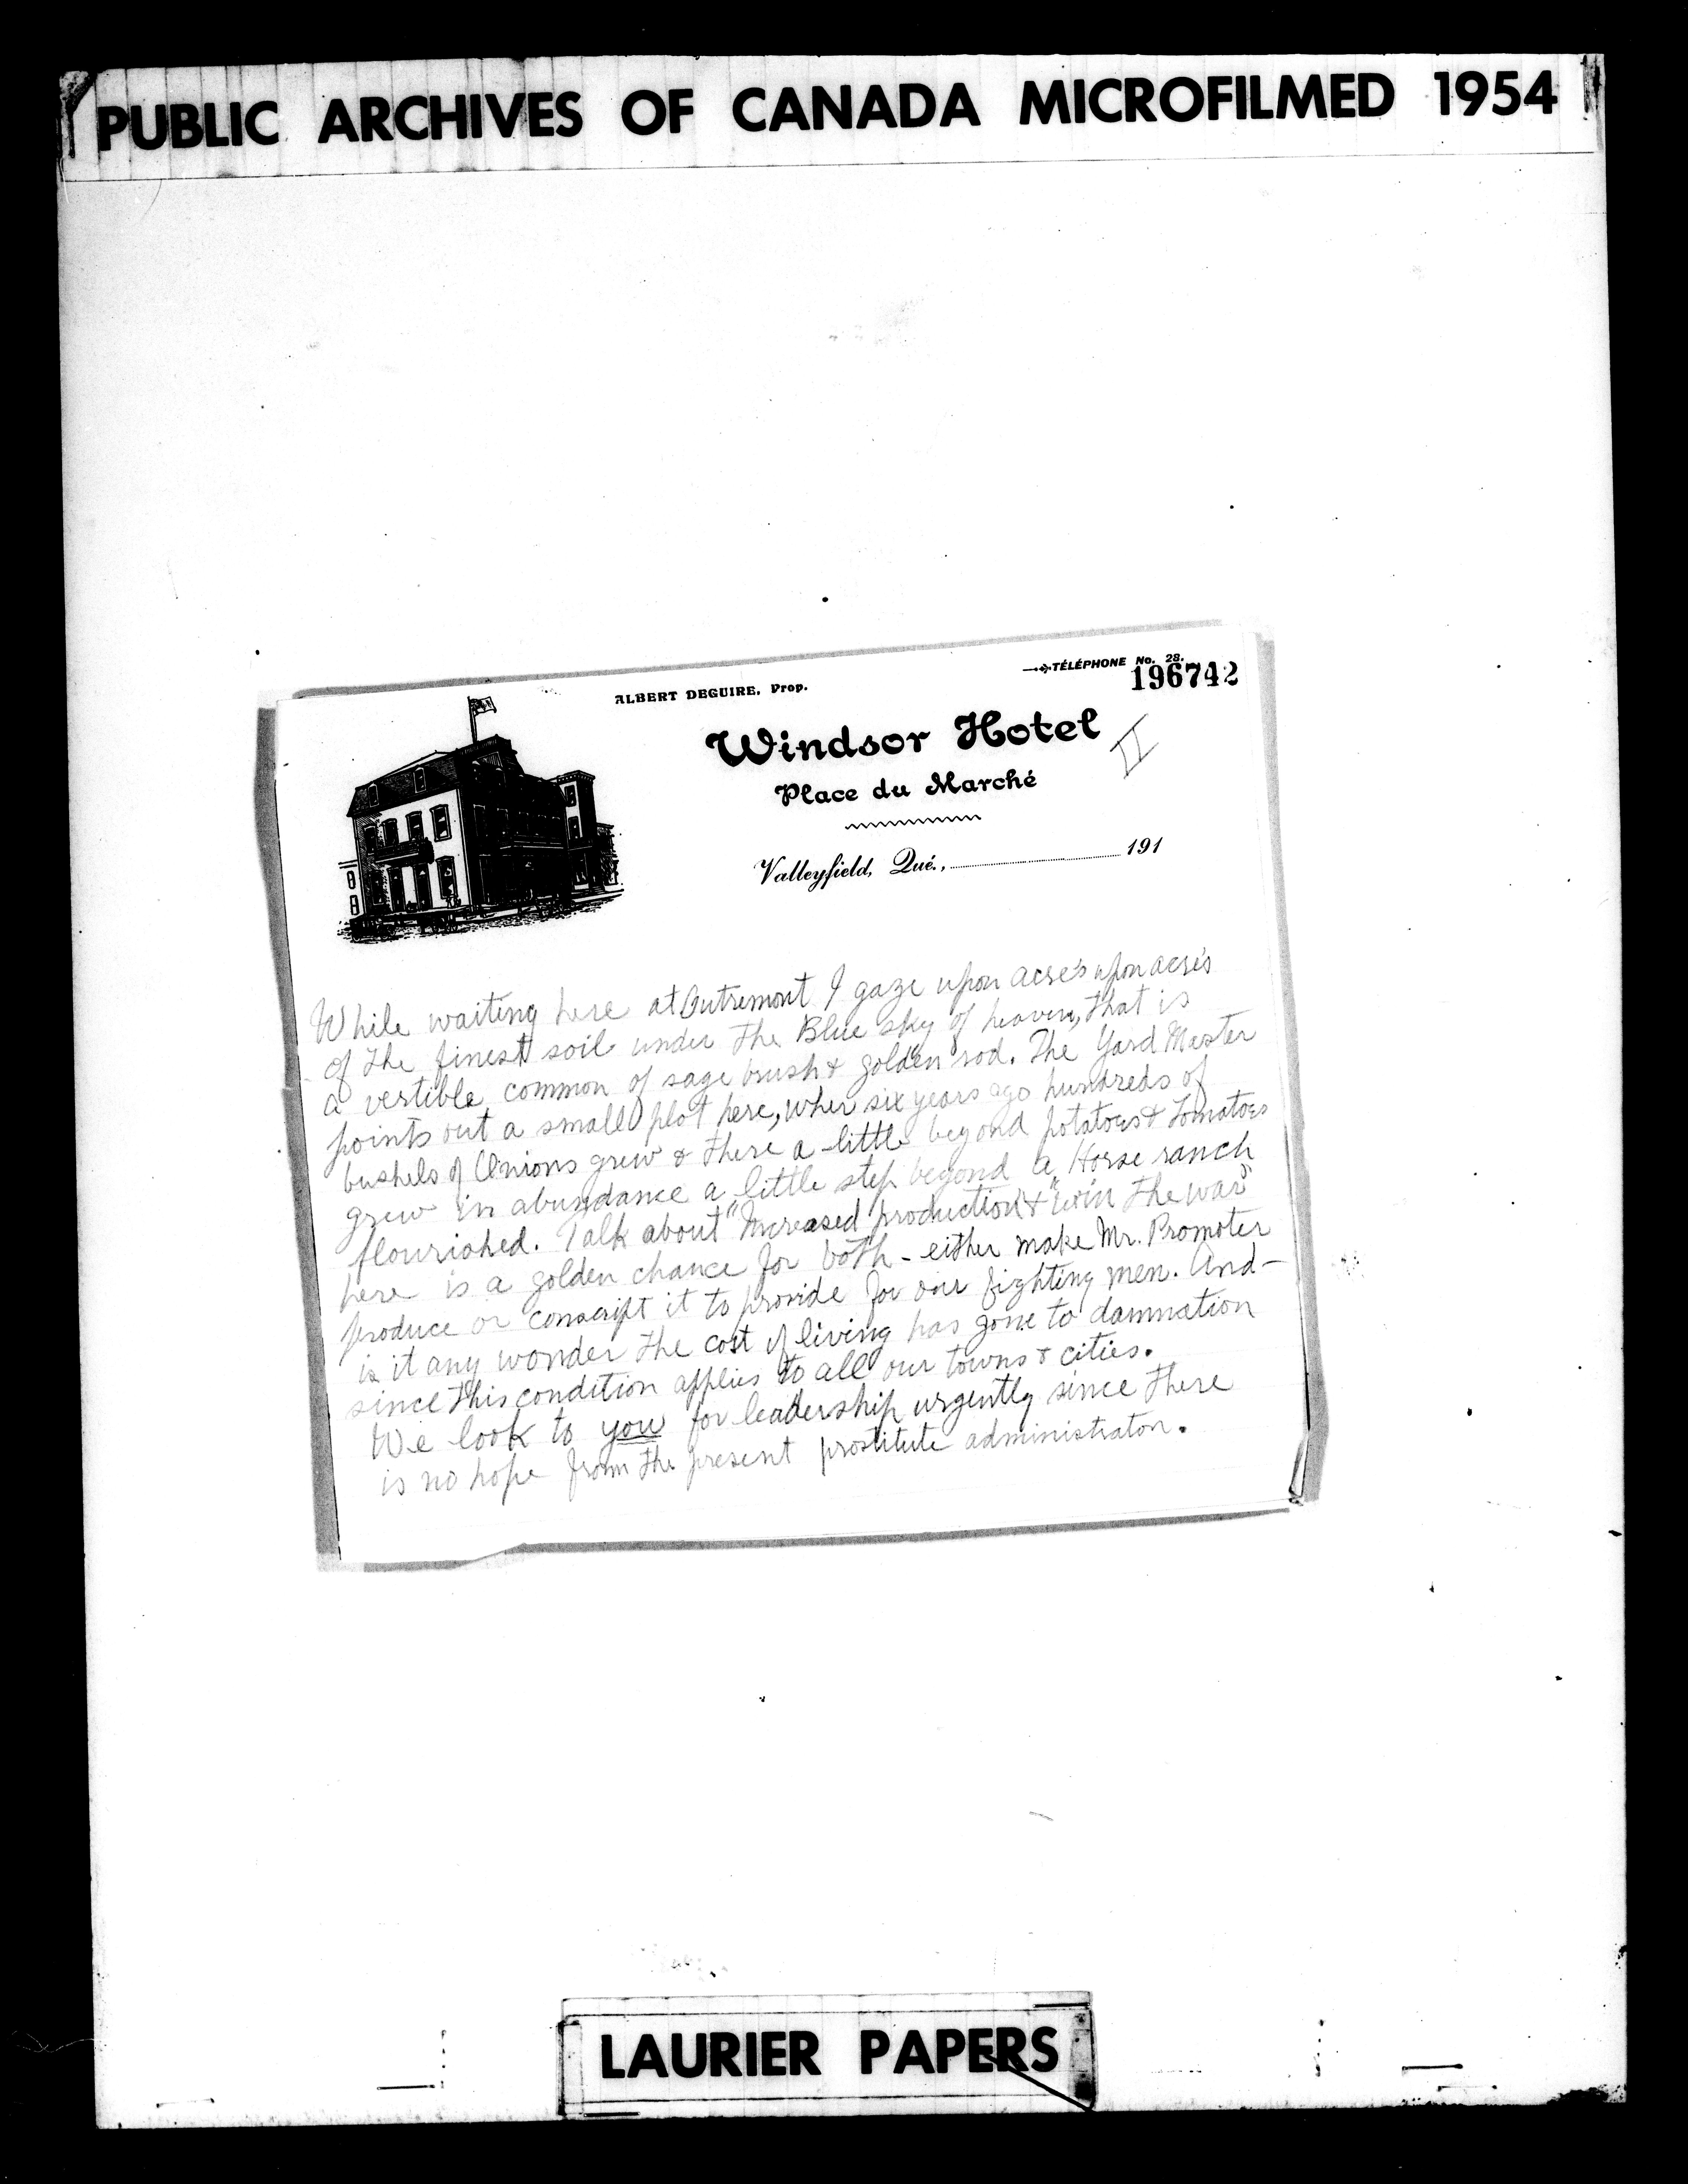 PUBLIC ARCHIVES OF CANADA MICROFILMED 1954
ALBERT DEGUIRE, Prop.
TÉLÉPHONE No. 28.
196742
Windsor Hotel
II
Place du Marché
Valleyfield, Qué., 191
While waiting here at Outremont I gaze upon acres upon acres
of the finest soil under the Blue sky of heaven, that is
a vertible common of sage brush & golden rod. The Yard Master
points out a small plot here, wher six years ago hundreds of
bushels of Onions grew & there a little beyond potatoes & Tomatoes
grew in abundance a little step beyond a Horse ranch
flourished. Talk about "Increased production" & "win the war"
here is a golden chance for both - either make Mr. Promoter
produce or conscript it to provide for our fighting men. And -
is it any wonder the cost of living has gone to damnation
since this condition applies to all our towns & cities.
We look to you for leadership urgently since there
is no hope from the present prostitute administraton.
LAURIER PAPERS